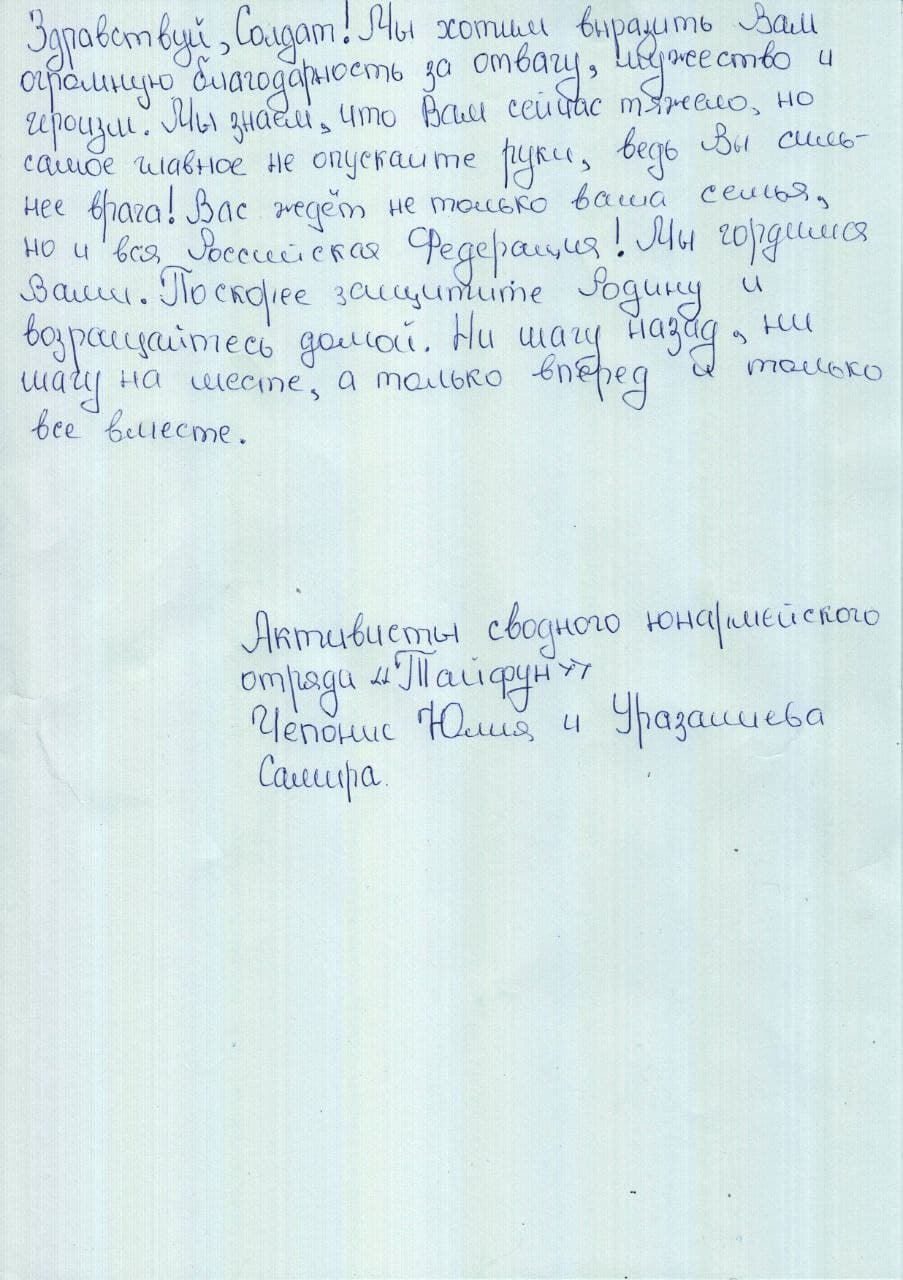 Здравствуй, Солдат! Мы хотим выразить Вам
огромную благодарность за отвагу, мужество и
героизм. Мы знаем, что Вам сейчас тяжело, но
самое главное не опускайте руки, ведь Вы силь-
нее врага! Вас ждёт не только ваша семья,
но и вся Российская Федерация! Мы гордимся
Вами. Поскорее защитите Родину и
возращайтесь домой. Ни шагу назад, ни
шагу на месте, а только вперёд и только
все вместе.
Активисты сводного юнармейского
отряда «Тайфун»
Чепонис Юлия и Уразалиева
Самира.